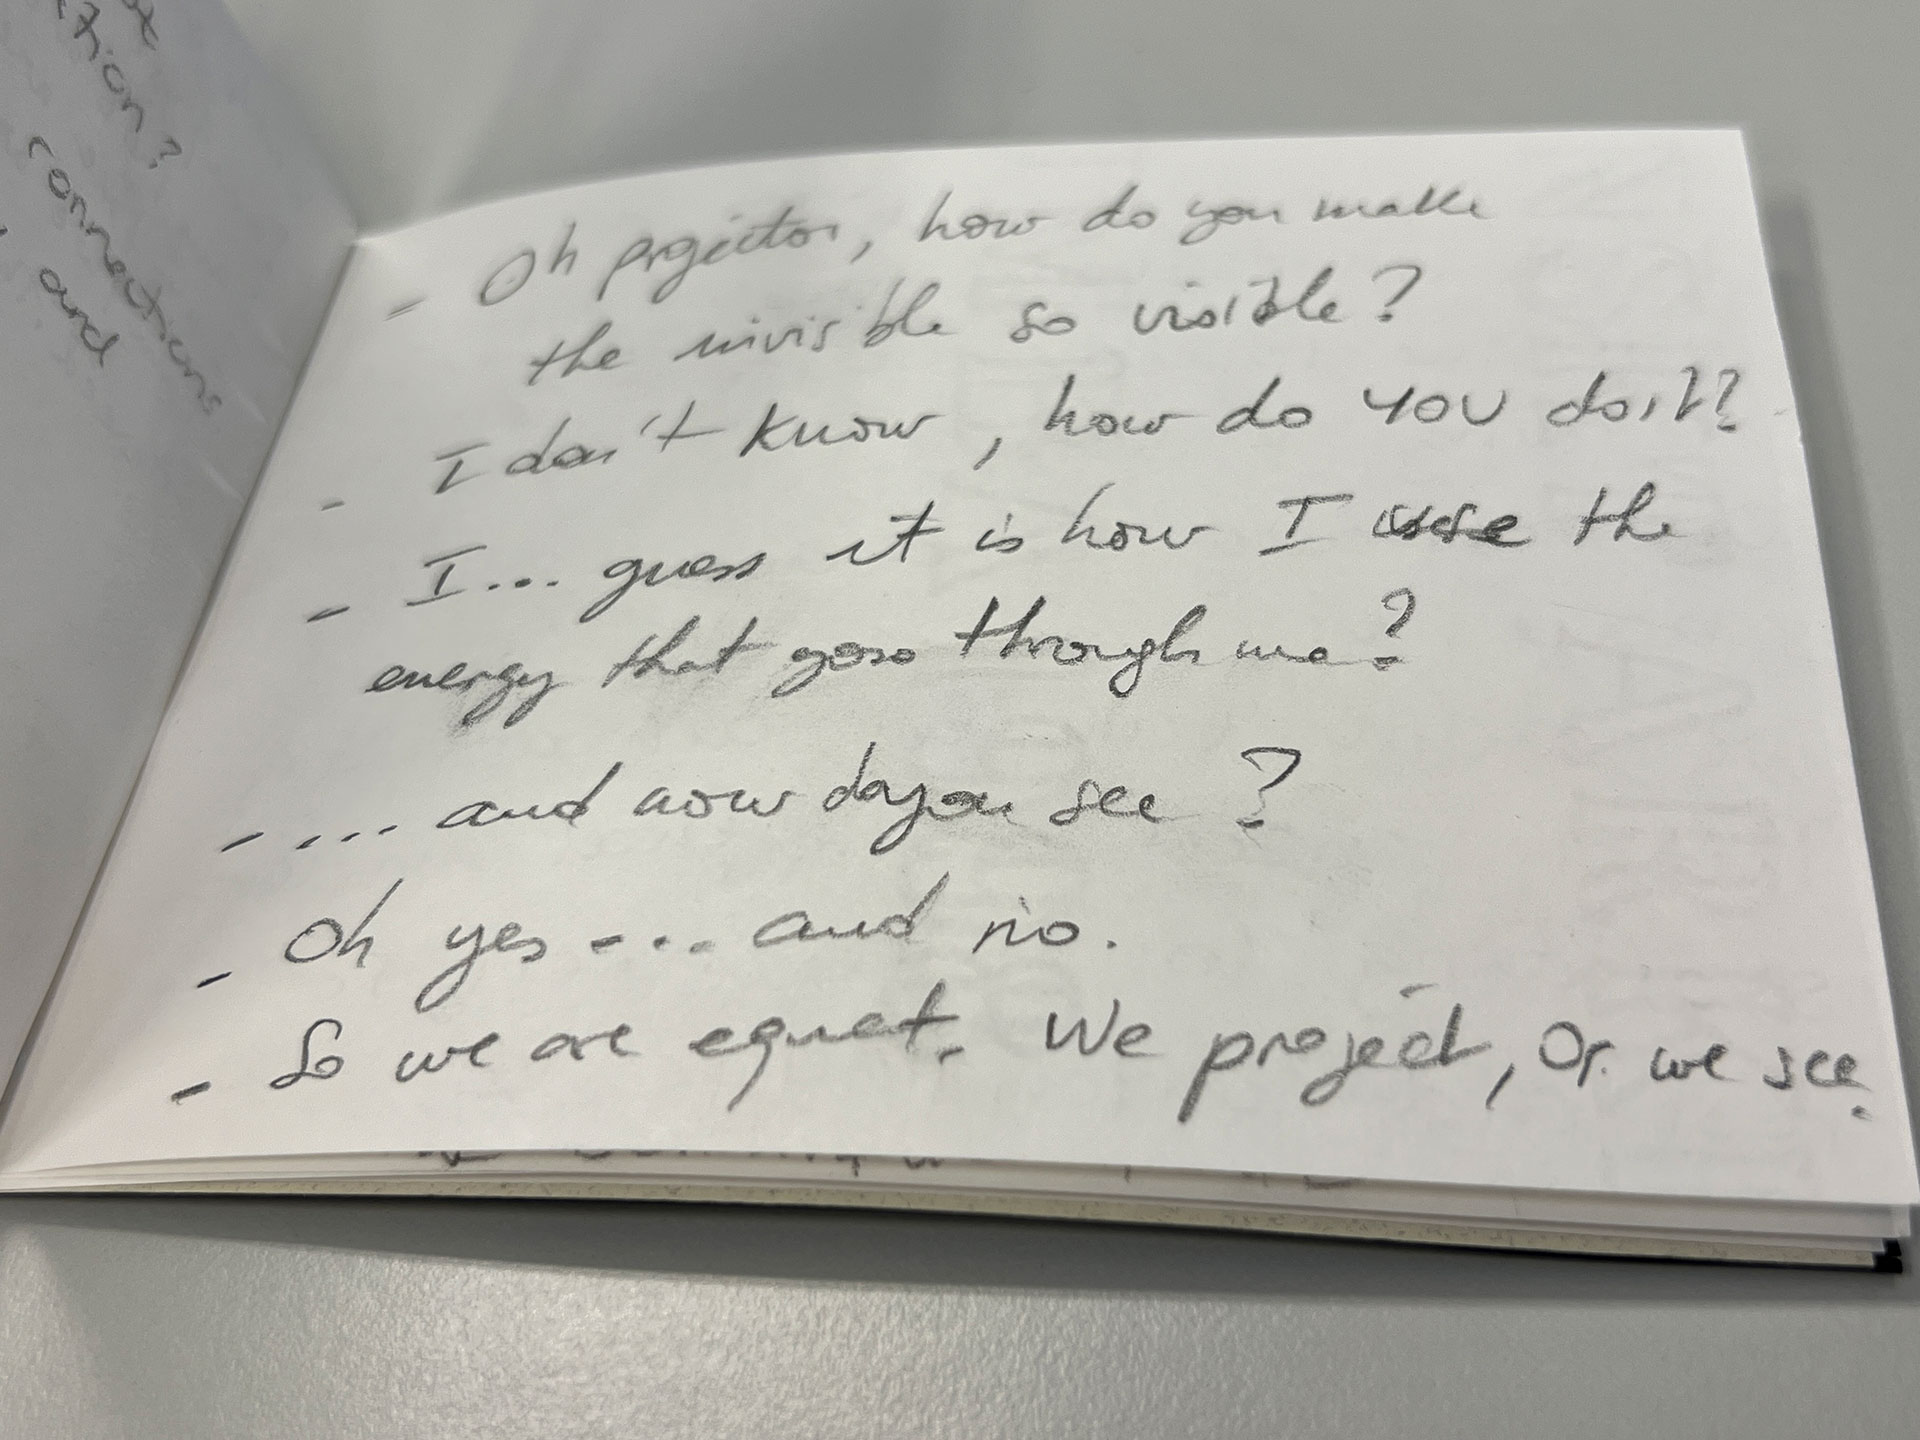 tion?
connections
and
- Oh projector, how do you make
the invisible so visible?
- I don't know, how do YOU do it?
- I... guess it is how I use the
energy that goes through me?
- .... and now do you see?
- Oh yes .... and no.
- So we are equal. We project, or we see.